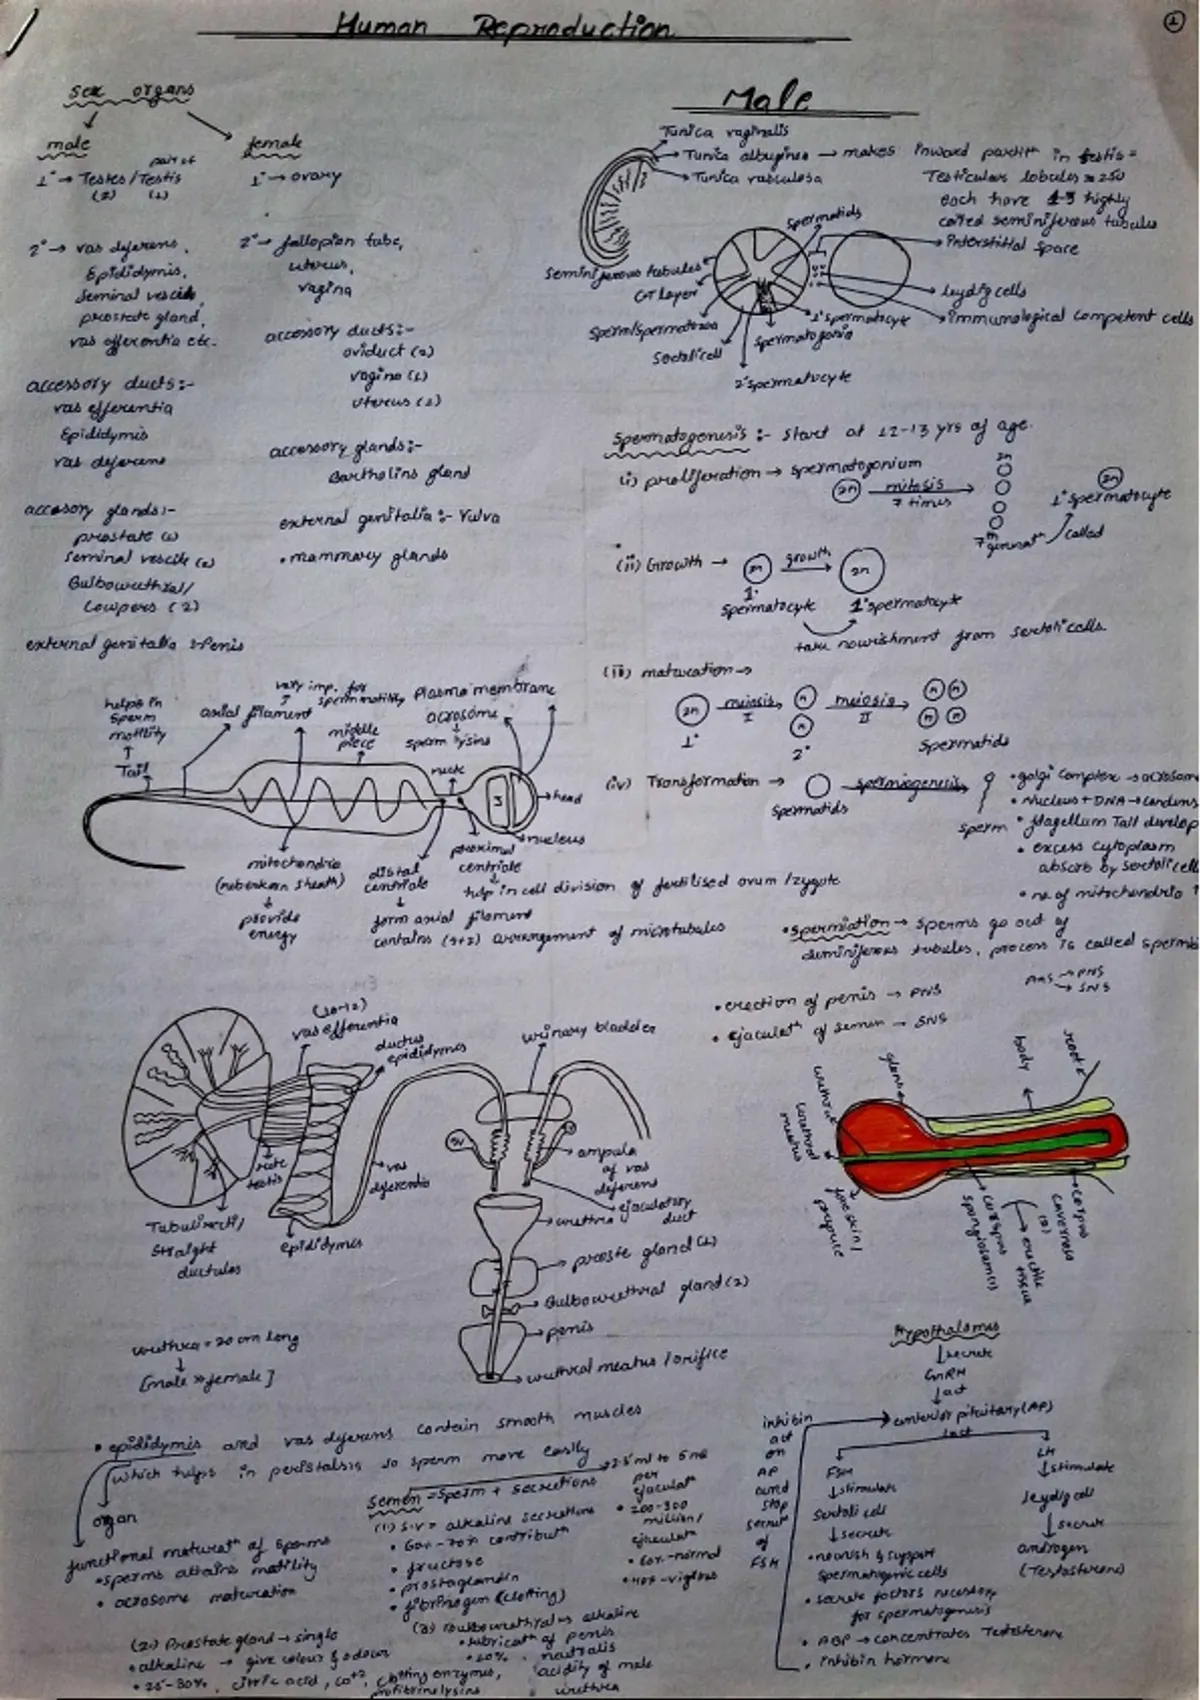 Human Reproduction
1
Sex organs
male
1° → Testes / Testis
pair of
(2) (1)
2° → vas deferens,
Epididymis,
Seminal vescile,
prostate gland,
vas efferentia etc.
accessory ducts :-
vas efferentia
Epididymis
vas deferens
accesory glands :-
prostate (1)
Seminal vescile (2)
Bulbourethral /
Cowpers (2)
external genitalia : Penis
female
1° → ovary
2° → fallopian tube,
uterus,
vagina
accessory ducts :-
oviduct (2)
vagina (1)
uterus (1)
accessory glands :-
Bartholins gland
external genitalia :- Vulva
• mammary glands
Male
Tunica vaginalis
Tunica albuginea → makes inward partitn in testis =
Tunica vasculosa
Testicular lobules ≈ 250
each have 1-3 highly
coiled seminiferous tubules
spermatids
Interstitial space
Seminiferous tubules
CT layer
Leydig cells
immunological competent cells
Sperm/spermatozoa
1° spermatocyte
Spermatogonia
Sertoli cell
2° spermatocyte
Spermatogenesis :- Start at 12-13 yrs of age.
(i) proliferation → spermatogonium
2n mitosis 7 times
2n
7th generatn called
2n
1° spermatocyte
(ii) Growth → 2n growth 2n
1° spermatocyte 1° spermatocyte
take nourishment from sertoli cells.
(iii) maturation →
2n meiosis I n meiosis II n n n n
1° 2° Spermatids
(iv) Transformation → spermiogenesis
Spermatids sperm
• golgi complex → acrosome
• Nucleus + DNA → condens
• flagellum Tail develop
• excess cytoplasm
absorb by sertoli cells
• no. of mitochondria ↑
• Spermiation → Sperms go out of
seminiferous tubules, process is called
helps in
sperm
motility
Tail
axial filament
very imp. for
sperm motility
middle
piece
plasma membrane
acrosome
sperm lysins
neck
head
nucleus
mitochondria
(nebenkern sheath)
provide
energy
distal
centriole
form axial filament
contains (9+2) arrangement of microtubules
proximal
centriole
help in cell division of fertilised ovum / zygote
ANS → PNS
→ SNS
• erection of penis → PNS
• ejaculatn of semen → SNS
vas efferentia
ductus
epididymis
urinary bladder
SV
rete
testis
vas
deferentia
ampula
of vas
deferens
ejaculatory
duct
Tubuli recti /
Straight
ductules
epididymis
urethra
proste gland (1)
Bulbourethral gland (2)
penis
urethral meatus / orifice
glans
body
root
urethra
urethral
meatus
foreskin /
prepuce
corpus
spongiosum (1)
erectile
tissue
corpus
cavernosa
(2)
urethra = 20 cm long
[male >> female]
• epididymis and vas deferens contain smooth muscles
which helps in peristalsis so sperm move easily
organ
functional maturatn of sperms
• sperms attains motility
• acrosome maturation
Semen = Sperm + secretions
(1) S.V = alkaline secretions
• 60%-70% contributn
• fructose
• prostaglandin
• fibrinogen (clotting)
per
ejaculatn
• 200-300
million /
ejaculatn
• 60% - normal
• 40% - vigrous
(2) Prostate gland → single
• alkaline → give colour & odour
• 25-30%, citric acid, Ca+2, clotting enzymes,
profibrinolysins
(3) Bulbourethral is alkaline
• lubricatn of penis
neutralis
acidity of male
urethra
Hypothalamus
secrete
GnRH
act
anterior pituitary (AP)
act
FSH
stimulate
Sertoli cell
secrete
• nourish & support
spermatogenic cells
• secrete factors necessary
for spermatogenesis
• ABP → concentrates Testosterone
• inhibin hormone
LH
stimulate
leydig cell
secrete
androgen
(Testosterone)
inhibin
act
on
AP
and
stop
secretn
of
FSH